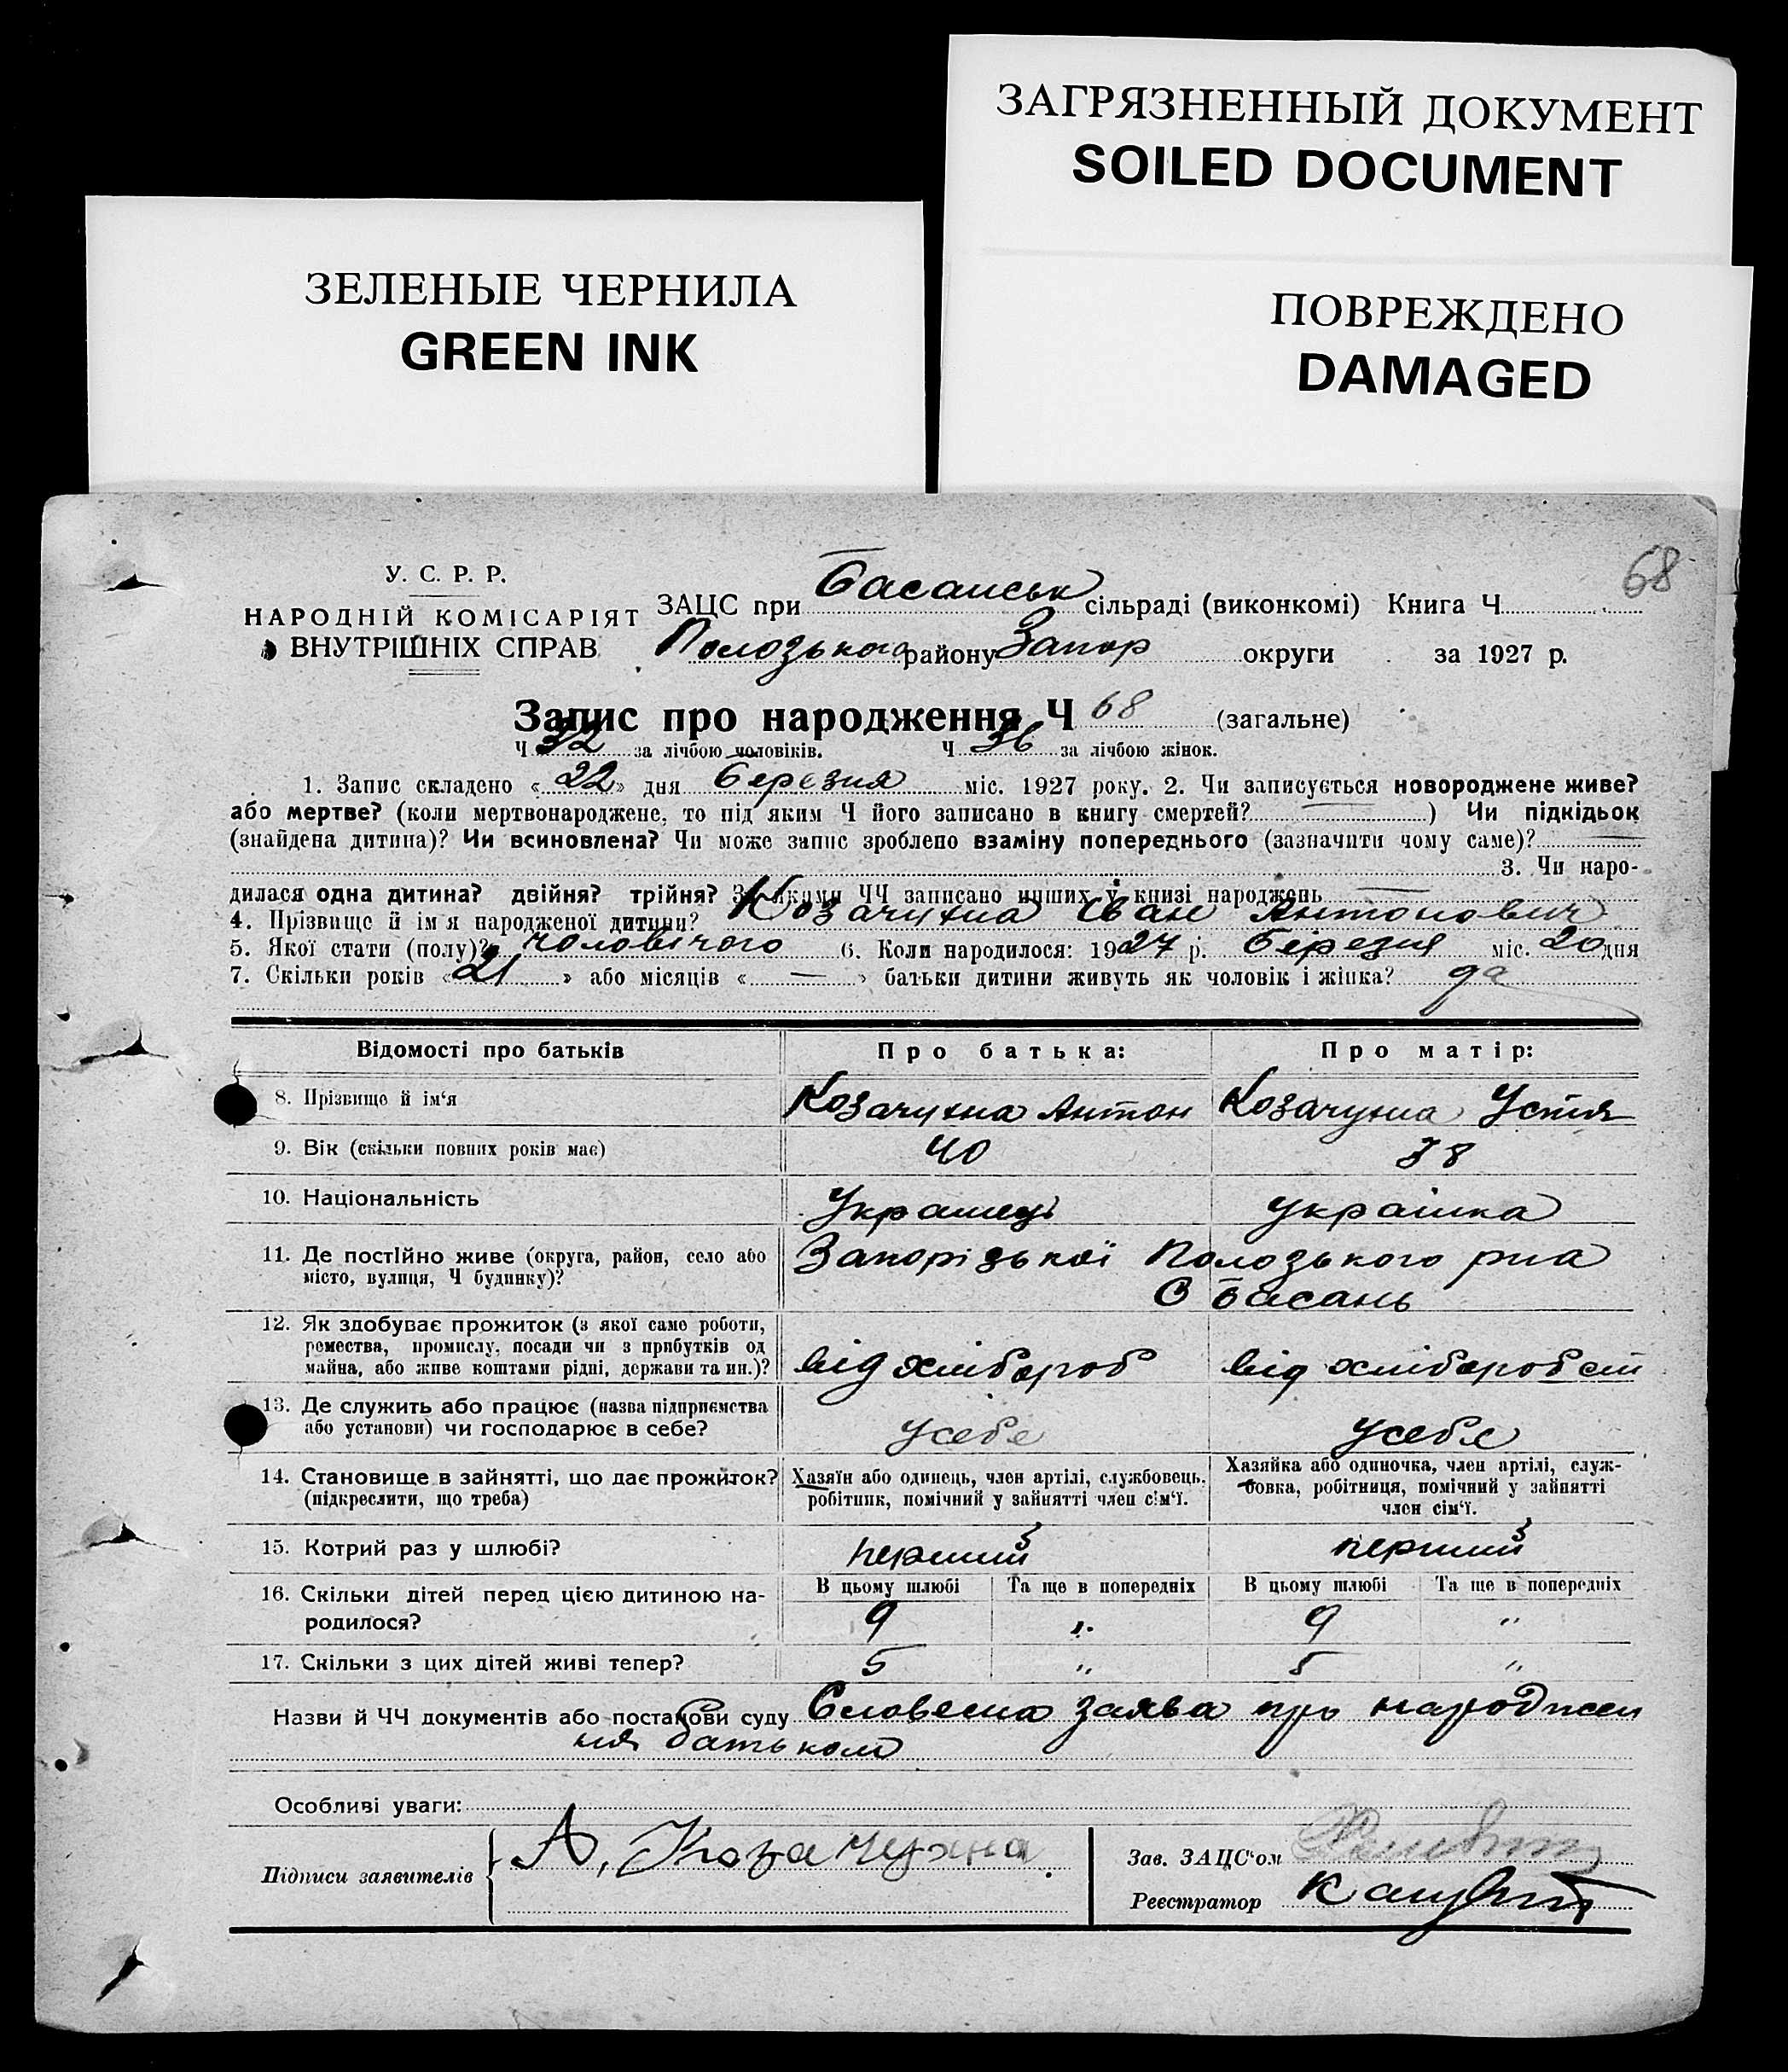 ЗАГРЯЗНЕННЫЙ ДОКУМЕНТ
SOILED DOCUMENT
ЗЕЛЕНЫЕ ЧЕРНИЛА
GREEN INK
ПОВРЕЖДЕНО
DAMAGED
68
У. С. Р. Р.
НАРОДНІЙ КОМІСАРІЯТ
ВНУТРІШНІХ СПРАВ
ЗАЦС при Басанськ сільраді (виконкомі) Книга Ч
Полозького району Запор округи за 1927 р.
Запис про народження Ч 68 (загальне)
Ч 32 за лічбою чоловіків. Ч 36 за лічбою жінок.
1. Запис складено «22» дня березня міс. 1927 року. 2. Чи записується новороджене живе?
або мертве? (коли мертвонароджене, то під яким Ч його записано в книгу смертей? —) Чи підкідьок
(знайдена дитина)? Чи всиновлена? Чи може запис зроблено взаміну попереднього (зазначити чому саме)? —
3. Чи наро-
дилася одна дитина? двійня? трійня? З якими ЧЧ записано инших у книзі народжень —
4. Прізвище й ім'я народженої дитини? Козачухна Іван Антонович
5. Якої стати (полу)? чоловічого 6. Коли народилося: 1927 р. березня міс. 20 дня
7. Скільки років «21» або місяців «—» батьки дитини живуть як чоловік і жінка? да
Відомості про батьків Про батька: Про матір:
8. Прізвище й ім‘я Козачухна Антон Козачухна Устя
9. Вік (скільки повних років має) 40 38
10. Національність Українець українка
11. Де постійно живе (округа, район, село або Запорізької Полозького р-на
місто, вулиця, Ч будинку)? С Басань
12. Як здобуває прожиток (з якої саме роботи,
ремества, промислу, посади чи з прибутків од
майна, або живе коштами рідні, держави та ин.)? від хлібороб від хліборобст
13. Де служить або працює (назва підприємства
або установи) чи господарює в себе? усебе усебе
14. Становище в зайнятті, що дає прожиток? Хазяїн або одинець, член артілі, службовець. Хазяйка або одиночка, член артілі, служ-
(підкреслити, що треба) робітник, помічний у зайнятті член сім‘ї. бовка, робітниця, помічний у зайнятті
член сім‘ї.
15. Котрий раз у шлюбі? перший перший
16. Скільки дітей перед цією дитиною на- В цьому шлюбі Та ще в попередніх В цьому шлюбі Та ще в попередніх
родилося? 9 „ 9 „
17. Скільки з цих дітей живі тепер? 5 „ 5 „
Назви й ЧЧ документів або постанови суду Словесна заява про народжен
ня батьком
Особливі уваги:
Підписи заявителів А. Козачухна.
Зав. ЗАЦС‘ом
Реестратор